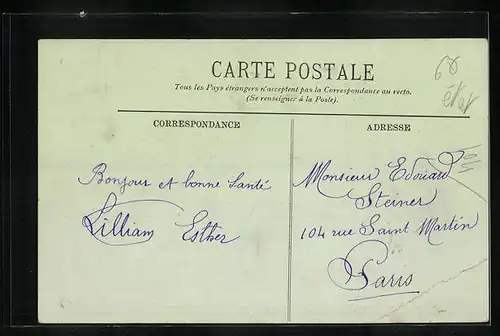 CARTE POSTALE
Tous les Pays étrangers n'acceptent pas la Correspondance au recto.
(Se renseigner à la Poste).
CORRESPONDANCE
ADRESSE
Bonjour et bonne Santé
Lilliam Esther
Monsieur Edouard
Steiner
104 rue Saint Martin
Paris
état